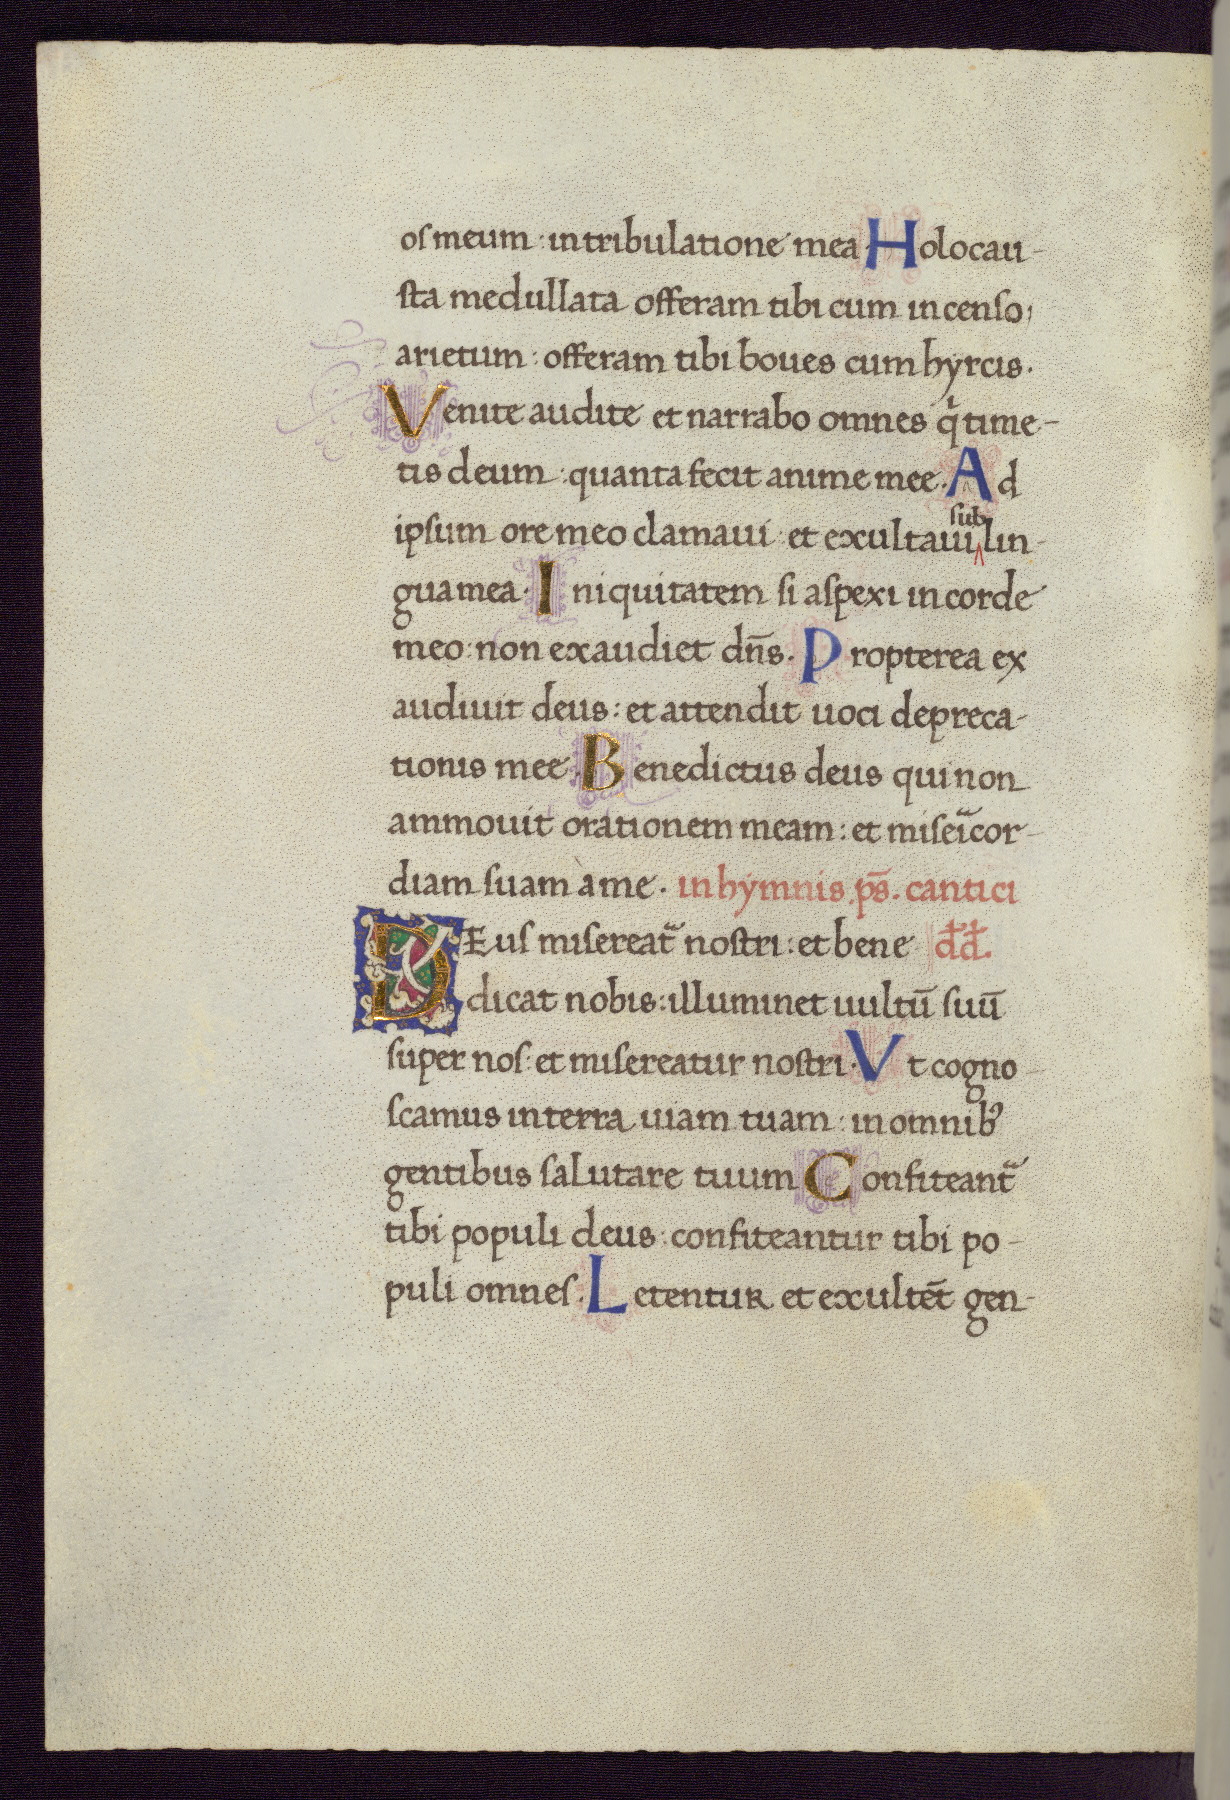 os meum : in tribulatione mea Holocau-
sta medullata offeram tibi cum incenso
arietum : offeram tibi boues cum hyrcis.
Venite audite et narrabo omnes q̍ time-
tis deum : quanta fecit anime mee. Ad
ipsum ore meo clamaui : et exultaui ‸sub lin-
gua mea. Iniquitatem si aspexi in corde
meo : non exaudiet dn̄s. Propterea ex
audiuit deus : et attendit uoci depreca-
tionis mee. Benedictus deus qui non
ammouit orationem meam : et miseiᷓcor-
diam suam à me. in hymnis ps̄. cantici
DEus misereatᷓ nostri : et bene dd̄.
dicat nobis : illuminet uultū suū
super nos : et misereatur nostri. Vt cogno-
scamus in terra uiam tuam : in omnibꝰ
gentibus salutare tuum Confiteantᷓ
tibi populi deus : confiteantur tibi po-
puli omnes. Letentur et exultēt gen-